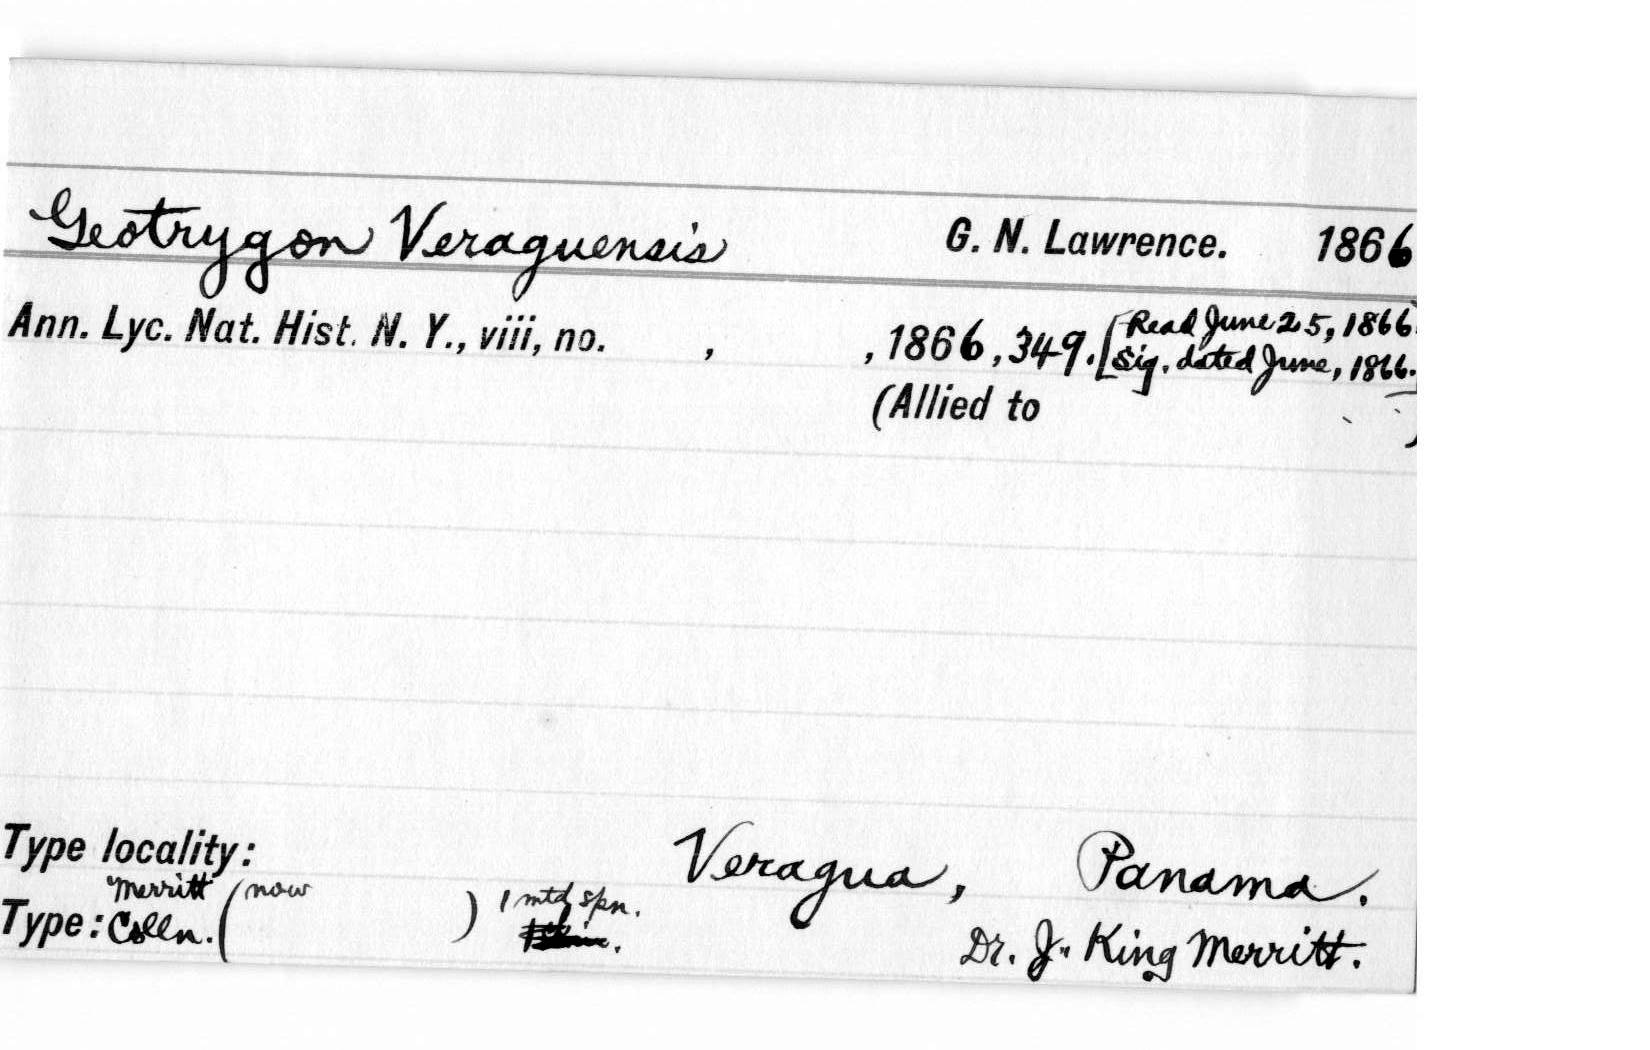 Geotrygon Veraguensis G. N. Lawrence. 1866
Ann. Lyc. Nat. Hist. N. Y., viii, no. , , 1866, 349. [Read June 25, 1866.
Sig. dated June, 1866.
(Allied to )
Type locality: Veragua, Panama.
Type: Merritt Colln. (now ) 1 mtd spn.
Dr. J. King Merritt.